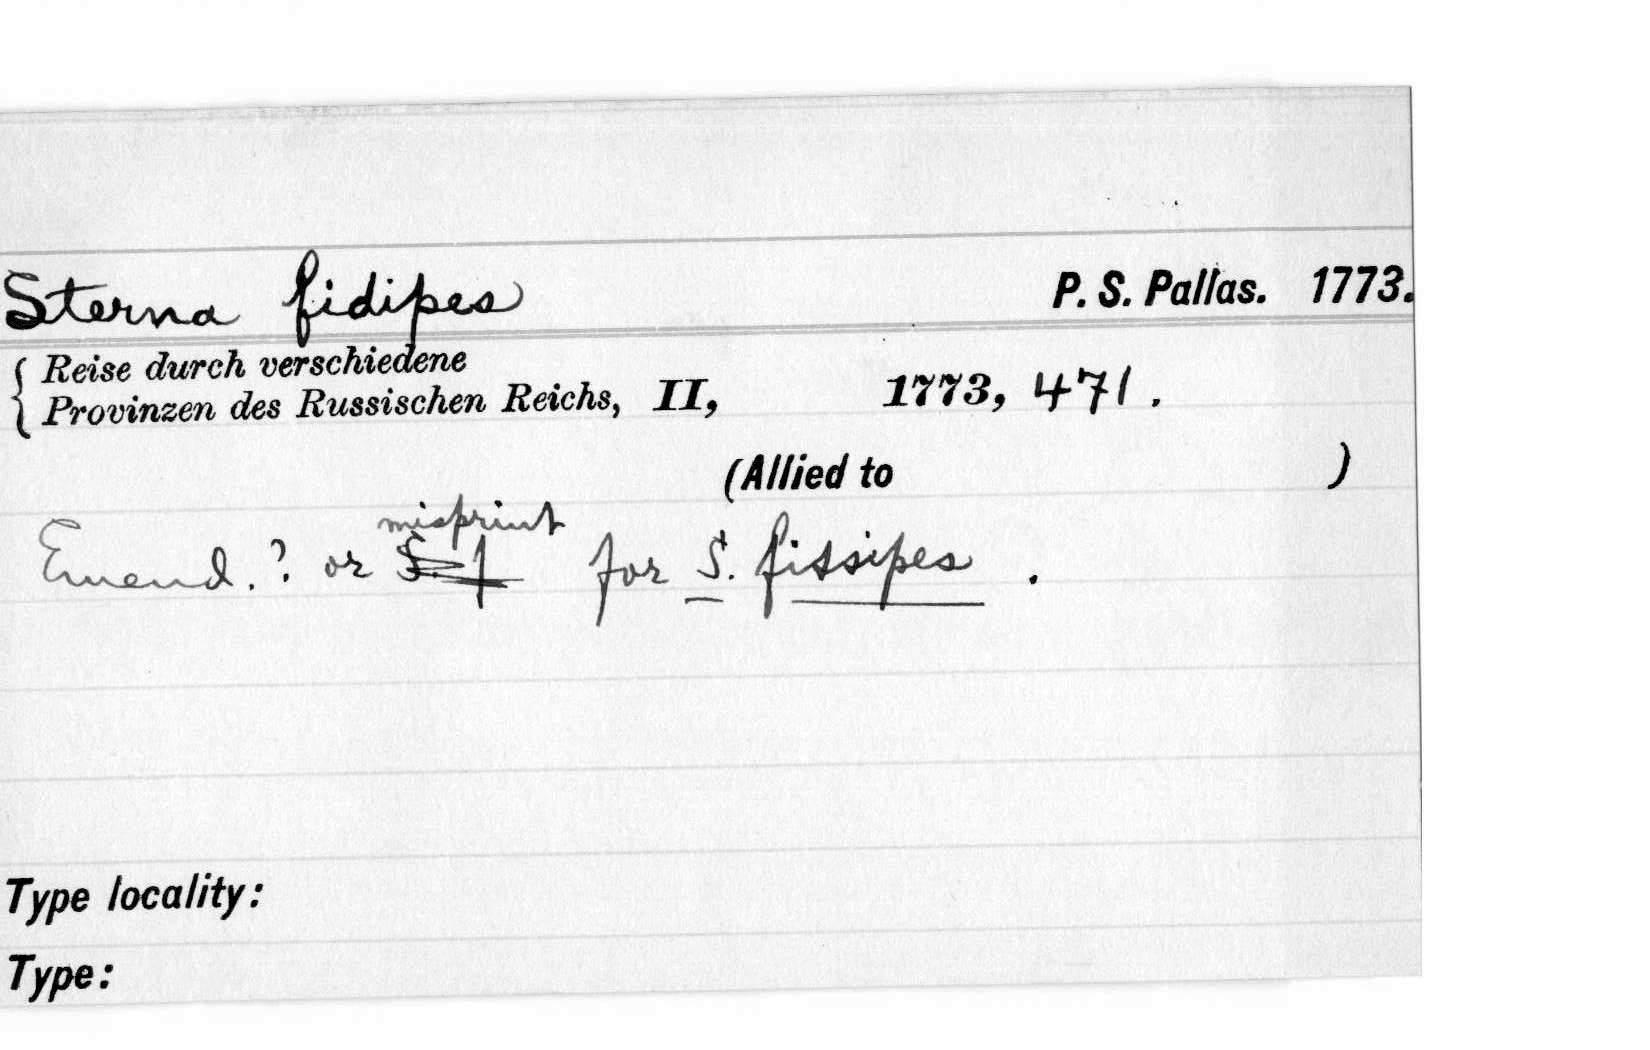 Sterna fidipes P. S. Pallas. 1773.
Reise durch verschiedene
Provinzen des Russischen Reichs, II, 1773, 471.
(Allied to )
misprint
Emend.? or S. f for S. fissipes.
Type locality:
Type: